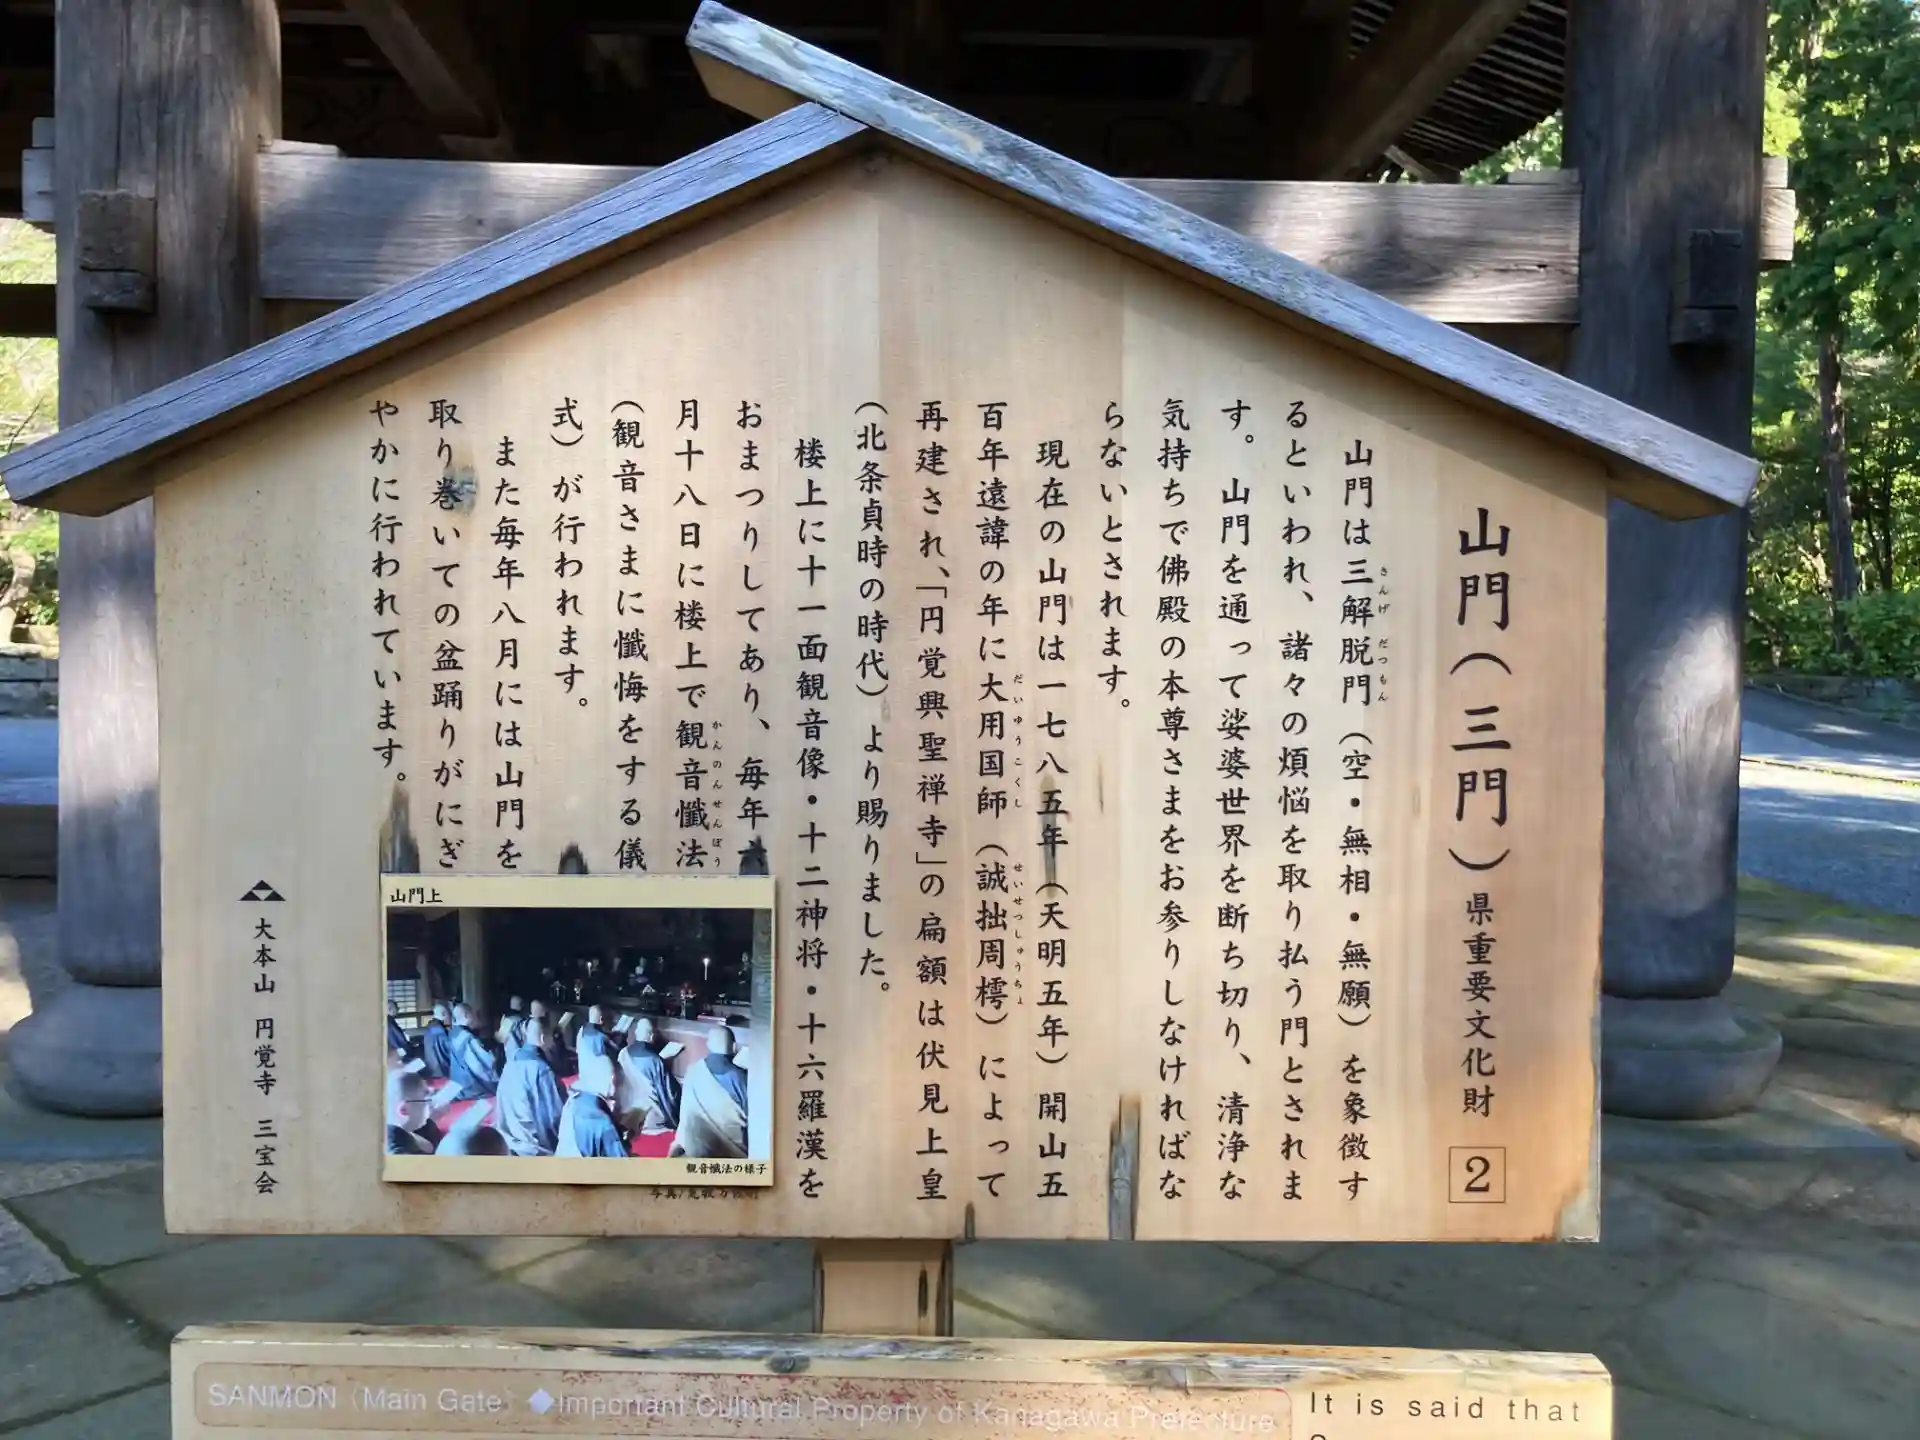 山門(三門)県重要文化財 2
山門は三解脱門(空・無相・無願)を象徴す
さんげ だつもん
るといわれ、諸々の煩悩を取り払う門とされま
す。山門を通って娑婆世界を断ち切り、清浄な
気持ちで佛殿の本尊さまをお参りしなければな
らないとされます。
現在の山門は一七八五年(天明五年)開山五
百年遠諱の年に大用国師(誠拙周樗)によって
だいゆうこくし せいせつしゅうちょ
再建され、「円覚興聖禅寺」の扁額は伏見上皇
(北条貞時の時代)より賜りました。
楼上に十一面観音像・十二神将・十六羅漢を
おまつりしてあり、毎年六
月十八日に楼上で観音懺法
かんのんせんぼう
(観音さまに懺悔をする儀
式)が行われます。
また毎年八月には山門を
取り巻いての盆踊りがにぎ
やかに行われています。
大本山 円覚寺 三宝会
山門上
観音懺法の様子
SANMON (Main Gate) ◆Important Cultural Property of Kanagawa Prefecture
It is said that